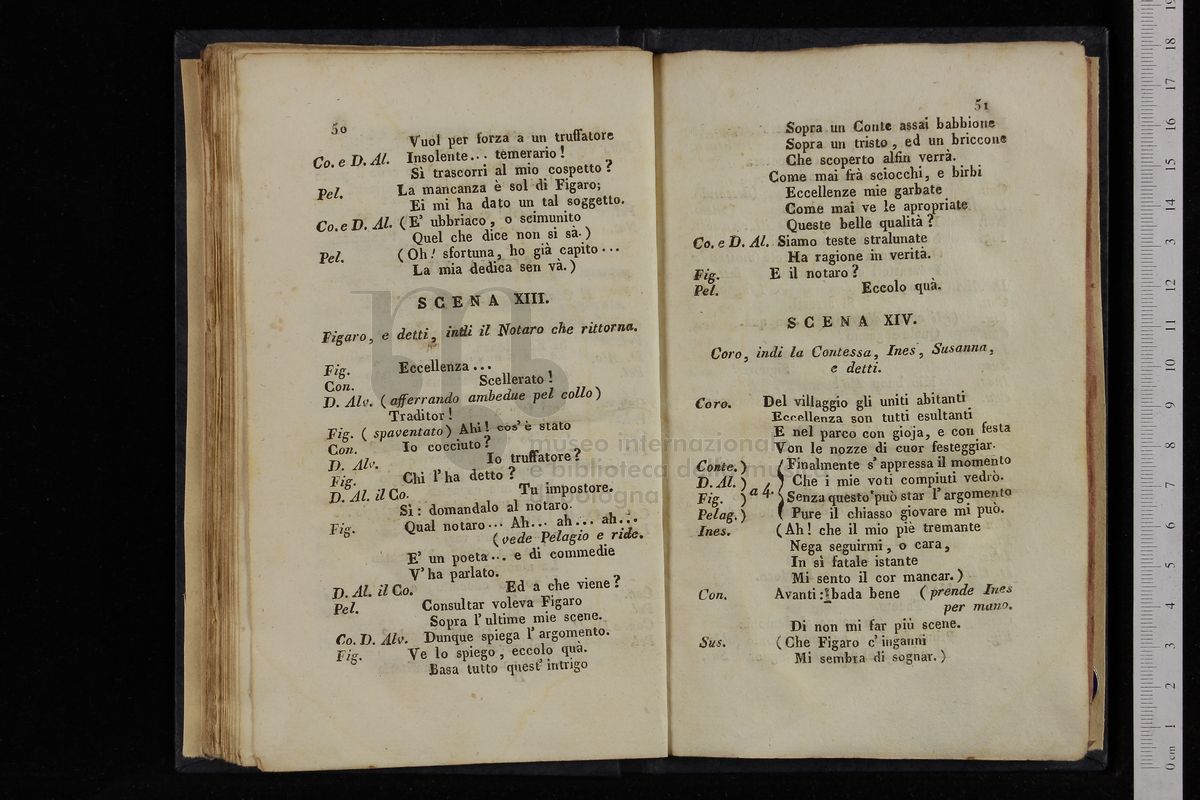 50
Vuol per forza a un truffatore
Co. e D. Al. Insolente... temerario!
Sì trascorri al mio cospetto?
Pel. La mancanza è sol di Figaro;
Ei mi ha dato un tal soggetto.
Co. e D. Al. (E' ubbriaco, o scimunito
Quel che dice non si sà.)
Pel. (Oh! sfortuna, ho già capito...
La mia dedica sen và.)
SCENA XIII.
Figaro, e detti, indi il Notaro che rittorna.
Fig. Eccellenza...
Con. Scellerato!
D. Alv. (afferrando ambedue pel collo)
Traditor!
Fig. (spaventato) Ahi! cos'è stato
Con. Io cocciuto?
D. Alv. Io truffatore?
Fig. Chi l'ha detto?
D. Al. il Co. Tu impostore.
Sì: domandalo al notaro.
Fig. Qual notaro... Ah... ah... ah...
(vede Pelagio e ride.
E' un poeta... e di commedie
V'ha parlato.
D. Al. il Co. Ed a che viene?
Pel. Consultar voleva Figaro
Sopra l'ultime mie scene.
Co. D. Alv. Dunque spiega l'argomento.
Fig. Ve lo spiego, eccolo quà.
Basa tutto quest'intrigo
51
Sopra un Conte assai babbione
Sopra un tristo, ed un briccone
Che scoperto alfin verrà.
Come mai frà sciocchi, e birbi
Eccellenze mie garbate
Come mai ve le apropriate
Queste belle qualità?
Co. e D. Al. Siamo teste stralunate
Ha ragione in verità.
Fig. E il notaro?
Pel. Eccolo quà.
SCENA XIV.
Coro, indi la Contessa, Ines, Susanna,
e detti.
Coro. Del villaggio gli uniti abitanti
Eccellenza son tutti esultanti
E nel parco con gioja, e con festa
Von le nozze di cuor festeggiar.
Conte.) (Finalmente s'appressa il momento
D. Al.) Che i mie voti compiuti vedrò.
Fig. ) a 4. Senza questo può star l'argomento
Pelag.) Pure il chiasso giovare mi può.
Ines. (Ah! che il mio piè tremante
Nega seguirmi, o cara,
In sì fatale istante
Mi sento il cor mancar.)
Con. Avanti: bada bene (prende Ines
per mano.
Di non mi far più scene.
Sus. (Che Figaro c'inganni
Mi sembra di sognar.)
museo internazionale
e biblioteca della musica
di bologna
0 cm 1 2 3 4 5 6 7 8 9 10 11 12 13 14 15 16 17 18 19